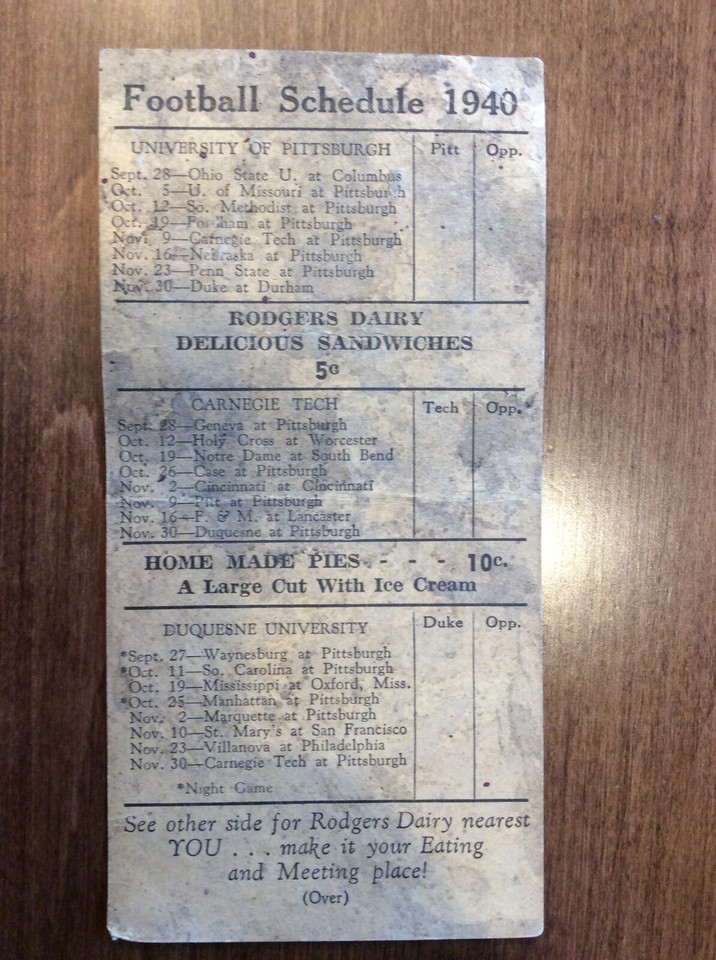 Football Schedule 1940
UNIVERSITY OF PITTSBURGH Pitt Opp.
Sept. 28—Ohio State U. at Columbus
Oct. 5—U. of Missouri at Pittsburgh
Oct. 12—So. Methodist at Pittsburgh
Oct. 19—Fordham at Pittsburgh
Nov. 9—Carnegie Tech at Pittsburgh
Nov. 16—Nebraska at Pittsburgh
Nov. 23—Penn State at Pittsburgh
Nov. 30—Duke at Durham
RODGERS DAIRY
DELICIOUS SANDWICHES
5c
CARNEGIE TECH Tech Opp.
Sept. 28—Geneva at Pittsburgh
Oct. 12—Holy Cross at Worcester
Oct. 19—Notre Dame at South Bend
Oct. 26—Case at Pittsburgh
Nov. 2—Cincinnati at Cincinnati
Nov. 9—Pitt at Pittsburgh
Nov. 16—F. & M. at Lancaster
Nov. 30—Duquesne at Pittsburgh
HOME MADE PIES - - - 10c.
A Large Cut With Ice Cream
DUQUESNE UNIVERSITY Duke Opp.
*Sept. 27—Waynesburg at Pittsburgh
*Oct. 11—So. Carolina at Pittsburgh
Oct. 19—Mississippi at Oxford, Miss.
*Oct. 25—Manhattan at Pittsburgh
Nov. 2—Marquette at Pittsburgh
Nov. 10—St. Mary's at San Francisco
Nov. 23—Villanova at Philadelphia
Nov. 30—Carnegie Tech at Pittsburgh
*Night Game
See other side for Rodgers Dairy nearest
YOU . . . make it your Eating
and Meeting place!
(Over)